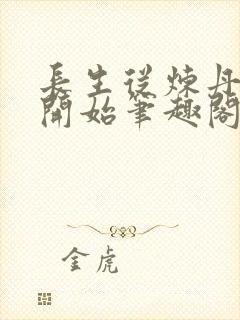 長生從煉丹
開始筆趣閣
金虎